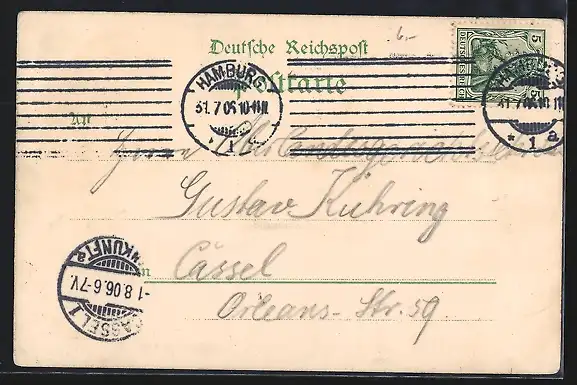 6.-
Deutsche Reichspost
Postkarte
5
HAMBURG
31.7.06.10-11N.
* 1 a
HAMBURG
31.7.06.10-11N.
* 1 a
An
Herrn Oberlandesgerichts
Gustav Kühring
in Cassel
Orléans-Str. 59.
CASSEL 1
-1.8.06.6-7V.
ANKUNFT a